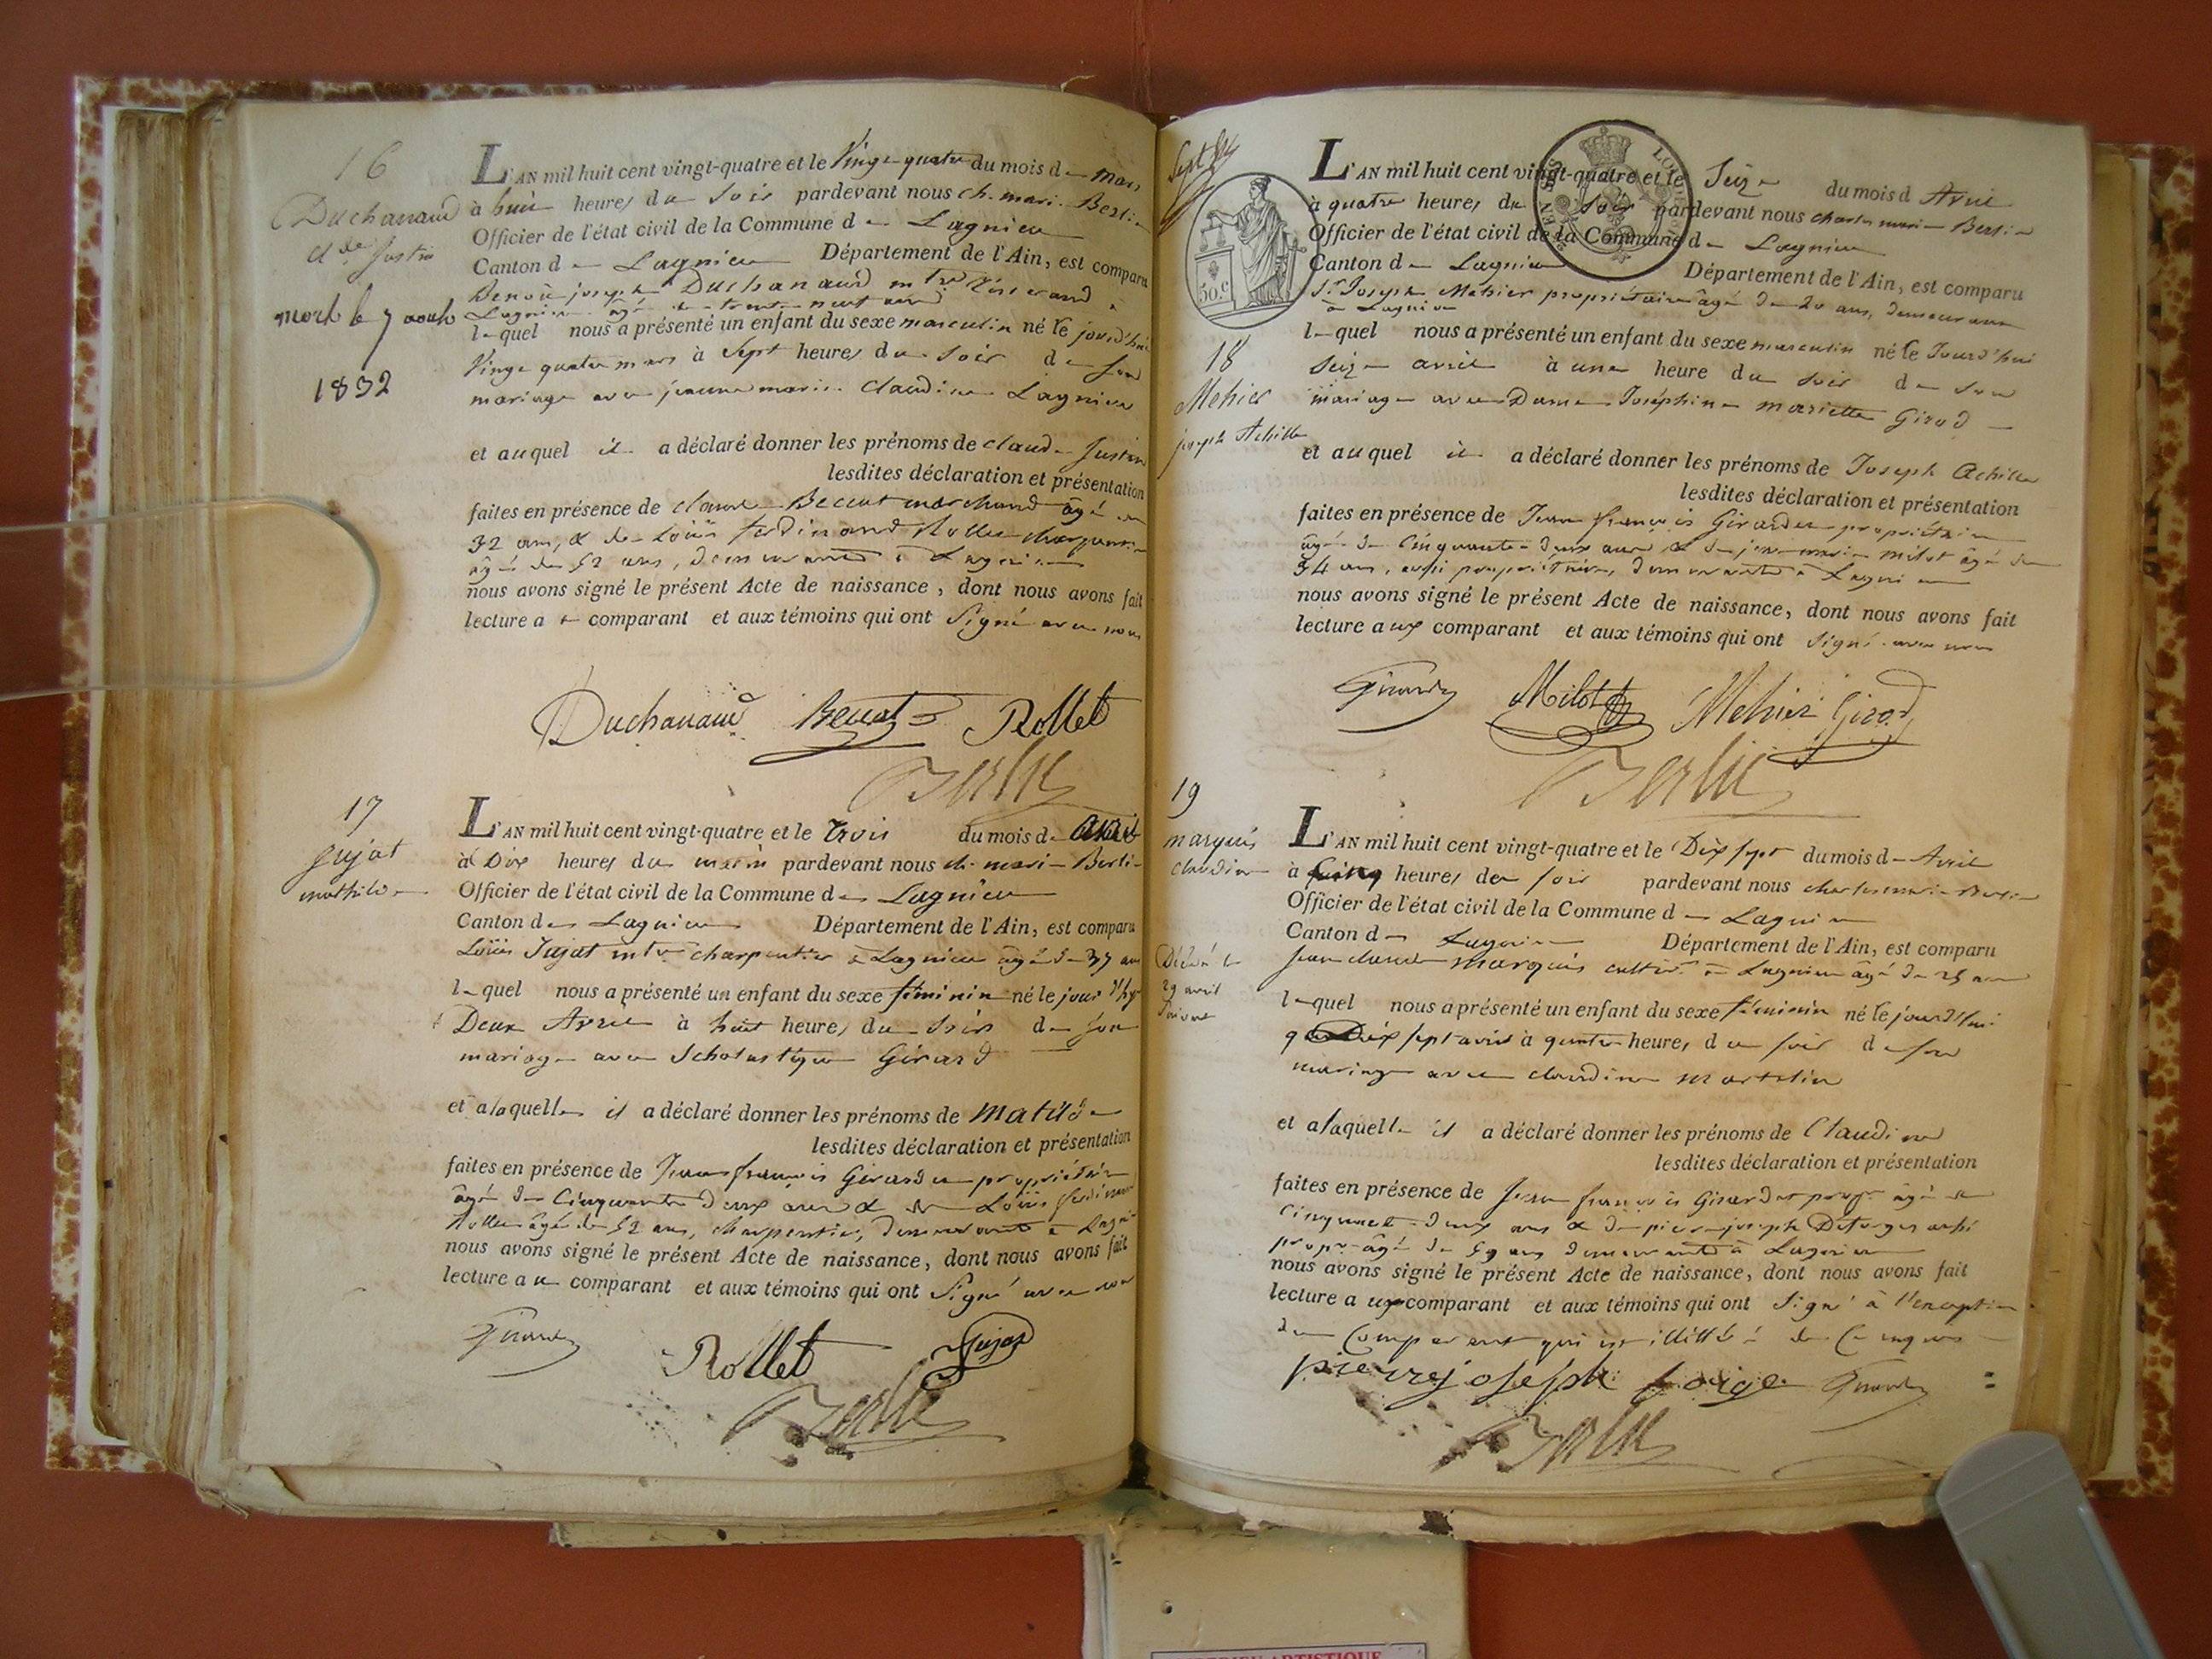 16
Duchanaud
Cl.de Justin
mort le 7 août
1832
L'AN mil huit cent vingt-quatre et le Vingt quatre du mois de mars
à huit heures du soir pardevant nous ch. marie Berlie
Officier de l'état civil de la Commune de Lagnieu
Canton de Lagnieu Département de l'Ain, est comparu
Benoit joseph Duchanaud mtre à
Lagnieu âgé de trente neuf ans
lequel nous a présenté un enfant du sexe masculin né le jourd'hui
Vingt quatre mars à Sept heures du soir de son
mariage avec jeanne marie Claudine Lagnieu
et auquel il a déclaré donner les prénoms de claude Justin
lesdites déclaration et présentation
faites en présence de claude Beccat marchand âgé de
32 ans, & de Loüis ferdinand Rollet charpentier
âgé de 52 ans, demeurants à Lagnieu
nous avons signé le présent Acte de naissance, dont nous avons fait
lecture a comparant et aux témoins qui ont Signé avec nous
Duchanaud Beccat Rollet
Berlie
17
Jujat
mathilde
L'AN mil huit cent vingt-quatre et le Trois du mois de Avril
à Dix heures du matin pardevant nous ch. marie Berlie
Officier de l'état civil de la Commune de Lagnieu
Canton de Lagnieu Département de l'Ain, est comparu
Loüis Jujat mtre charpentier à Lagnieu âgé de 37 ans
lequel nous a présenté un enfant du sexe féminin né le jour d'hyer
Deux Avril à huit heures du soir de son
mariage avec Scholastique Girard
et a laquelle il a déclaré donner les prénoms de Matilde
lesdites déclaration et présentation
faites en présence de Jean françois Girardet propriétaire
âgé de Cinquante deux ans & de Loüis ferdinand
Rollet âgé de 52 ans, charpentier, demeurants à Lagnieu
nous avons signé le présent Acte de naissance, dont nous avons fait
lecture au comparant et aux témoins qui ont Signé avec nous
Girardet Rollet Jujat
Berlie
50.c
18
Mehier
joseph Achille
L'AN mil huit cent vingt-quatre et le Seize du mois d Avril
à quatre heures du soir pardevant nous charles marie Berlie
Officier de l'état civil de la Commune de Lagnieu
Canton de Lagnieu Département de l'Ain, est comparu
Sr. Joseph Mehier propriétaire âgé de 20 ans, demeurant
à Lagnieu
lequel nous a présenté un enfant du sexe masculin né le Jourd'hui
Seize avril à une heure du soir de son
mariage avec Dame Joséphine mariette Girod
et auquel il a déclaré donner les prénoms de Joseph Achille
lesdites déclaration et présentation
faites en présence de Jean françois Girardet propriétaire
âgé de Cinquante deux ans & de jean marie milot âgé de
34 ans, aussi propriétaire, demeurants à Lagnieu
nous avons signé le présent Acte de naissance, dont nous avons fait
lecture aux comparant et aux témoins qui ont Signé avec nous
Girardet Milot Mehier Girod
Berlie
19
marquis
claudine
Décédée le
29 avril
suivant
L'AN mil huit cent vingt-quatre et le Dix sept du mois de Avril
à Cinq heures du soir pardevant nous charles marie Berlie
Officier de l'état civil de la Commune de Lagnieu
Canton de Lagnieu Département de l'Ain, est comparu
Jean claude marquis cultivr. à Lagnieu âgé de 25 ans
lequel nous a présenté un enfant du sexe féminin né le jourd'hui
Dix sept avril à quatre heures du soir de son
mariage avec claudine martelin
et a laquelle il a déclaré donner les prénoms de Claudine
lesdites déclaration et présentation
faites en présence de Jean françois Girardet propre. âgé de
Cinquante deux ans & de pierre joseph Deforges aussi
propre. âgé de 59 ans demeurants à Lagnieu
nous avons signé le présent Acte de naissance, dont nous avons fait
lecture aux comparant et aux témoins qui ont Signé à l'exception
du Comparant qui est illitéré de ce enquis
pierre joseph forge Girardet
Berlie